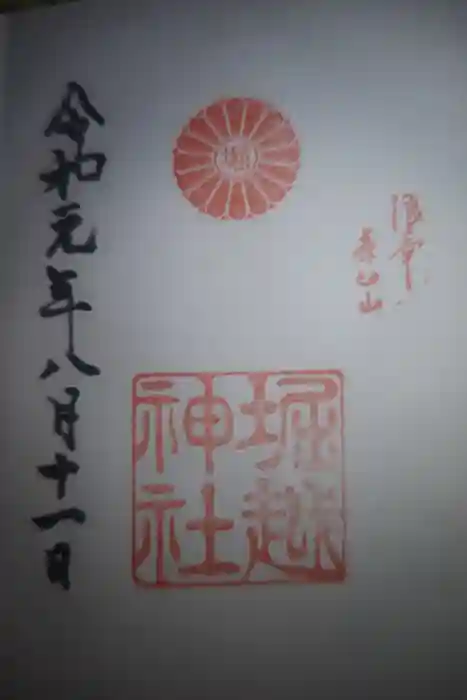 堀越
神社
令和元年八月十一日